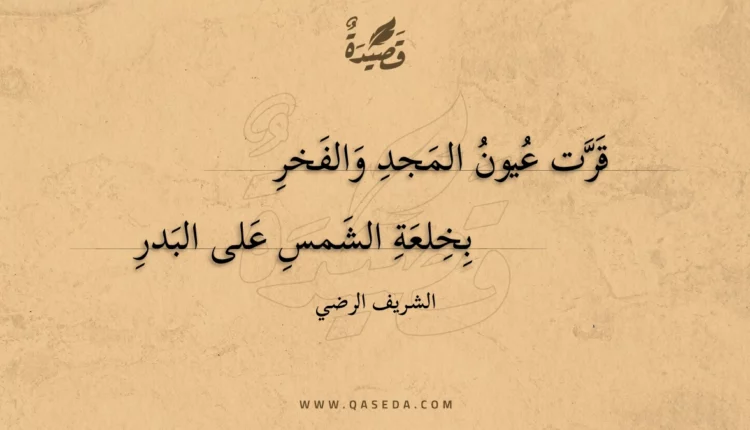 قَصِيْدَةٌ
قَرَّت عُيونُ المَجدِ وَالفَخرِ
بِخِلعَةِ الشَمسِ عَلى البَدرِ
الشريف الرضي
WWW.QASEDA.COM